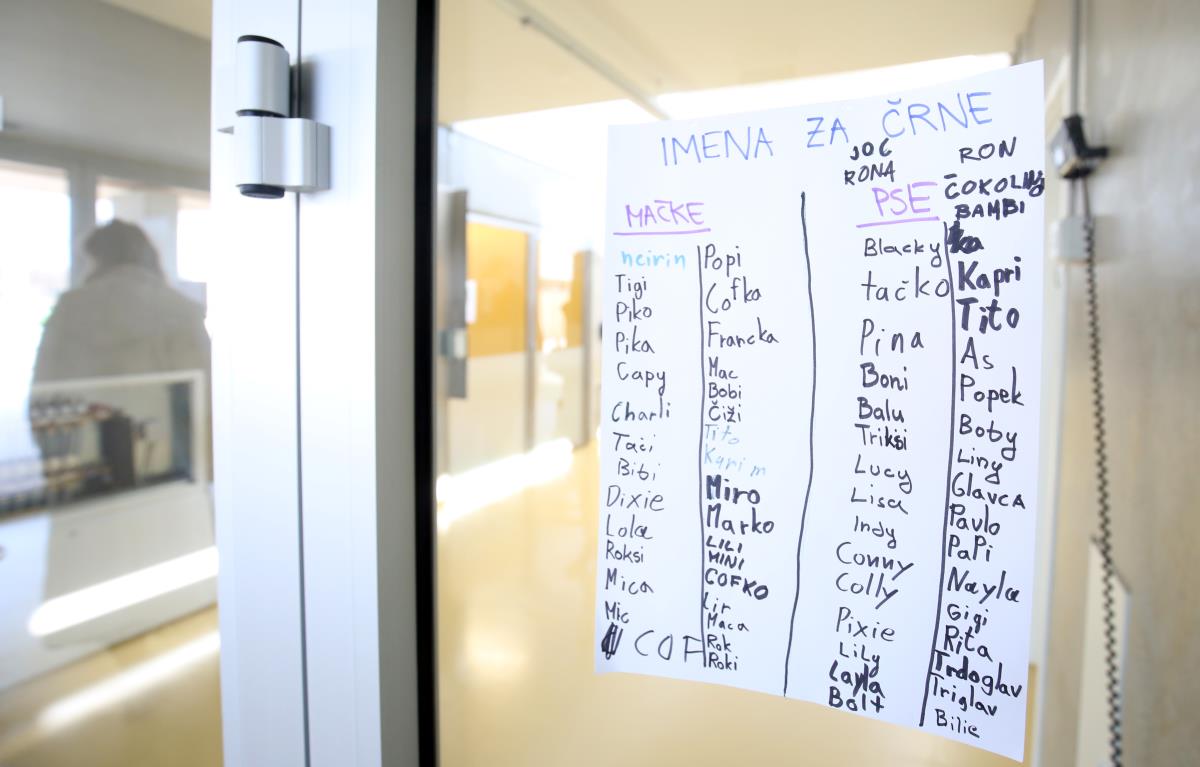 IMENA ZA ČRNE
MAČKE
neirin
Tigi
Piko
Pika
Capy
Charli
Tači
Bibi
Dixie
Lola
Roksi
Mica
Mic
COF
Popi
Cofka
Francka
Mac
Bobi
Čiži
Tito
Karim
Miro
Marko
LILI
MINI
COFKO
Lir
Maca
Rok
Roki
JOC
RONA
PSE
Blacky
tačko
Pina
Boni
Balu
Triksi
Lucy
Lisa
Indy
Conny
Colly
Pixie
LiLy
Layla
Bolt
RON
ČOKOLINO
BAMBI
Kapri
Tito
As
Popek
Boby
Ling
Glavca
Pavlo
PaPi
Nayla
Gigi
Rita
Trdoglav
Triglav
Bilie